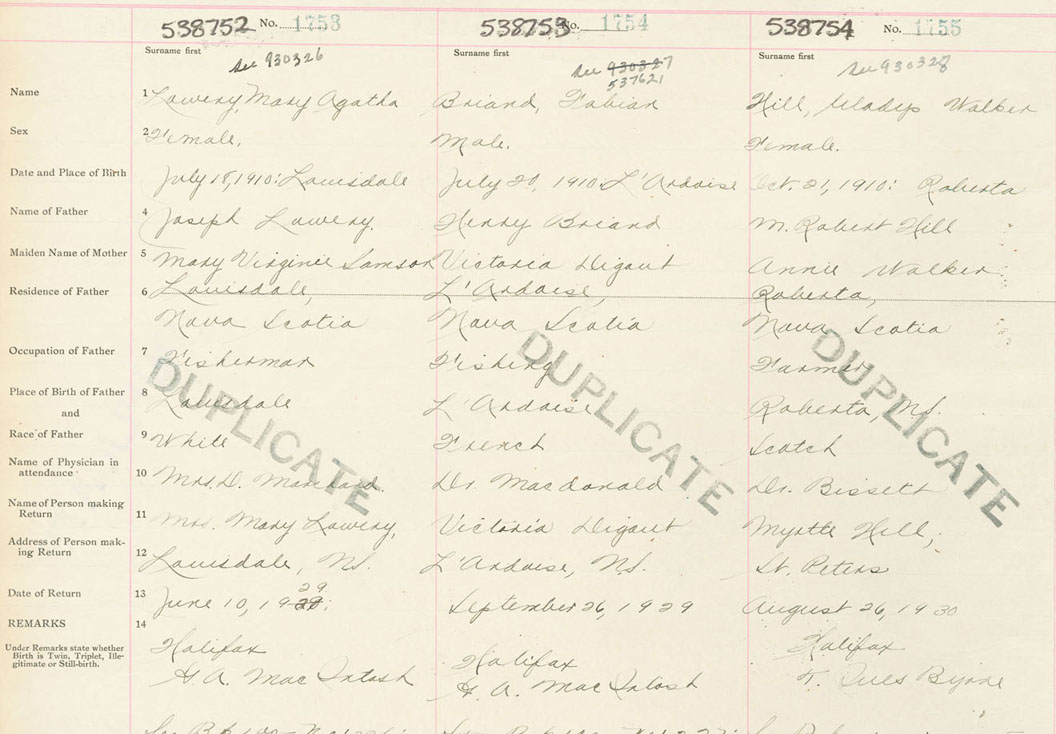 538752 No. 1753
538753 No. 1754
538754 No. 1755
Surname first
Surname first
Surname first
See 930326
See 930327
537621
See 930328
Name 1 Lowery, Mary Agatha
Briand, Fabian
Hill, Gladys Walker
Sex 2 Female.
Male.
Female.
Date and Place of Birth 3 July 18, 1910: Louisdale
July 20, 1910: L'Ardoise
Oct. 21, 1910: Roberta
Name of Father 4 Joseph Lowery.
Henry Briand
M. Robert Hill
Maiden Name of Mother 5 Mary Virginie Samson
Victoria Digout
Annie Walker
Residence of Father 6 Louisdale,
L'Ardoise,
Roberta,
Nova Scotia
Nova Scotia
Nova Scotia
Occupation of Father 7 Fisherman
Fishing
Farmer
Place of Birth of Father 8 Louisdale
L'Ardoise
Roberta, N.S.
and
Race of Father 9 White
French
Scotch
Name of Physician in
attendance 10 Mrs. D. Marchand.
Dr. Macdonald
Dr. Bissett
Name of Person making
Return 11 Mrs. Mary Lowery,
Victoria Digout
Myrtle Hill,
Address of Person mak-
ing Return 12 Louisdale, N.S.
L'Ardoise, N.S.
St. Peters
Date of Return 13 June 10, 1929:
September 26, 1929
August 26, 1930
REMARKS 14
Under Remarks state whether
Birth is Twin, Triplet, Ille-
gitimate or Still-birth.
Halifax
Halifax
Halifax
G. A. MacIntosh
G. A. MacIntosh
Byrne
DUPLICATE
DUPLICATE
DUPLICATE